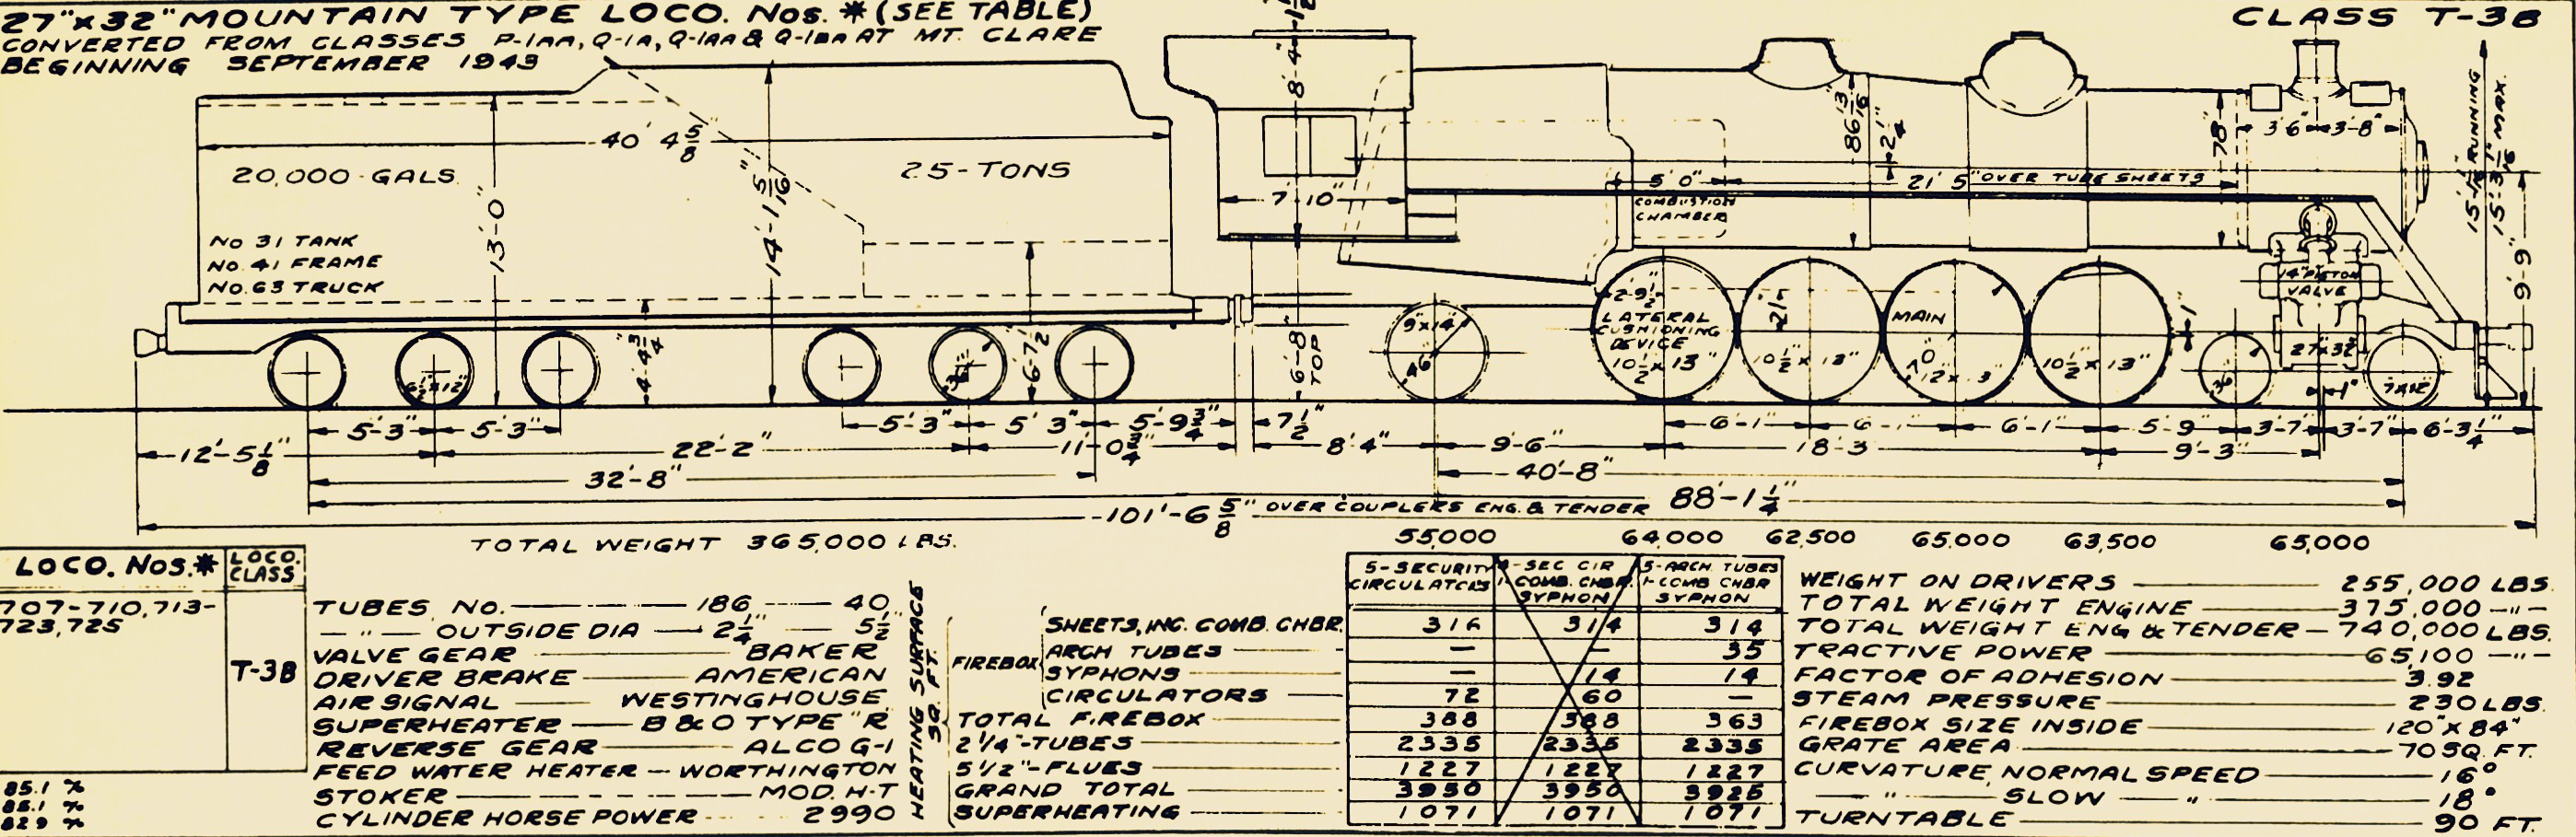 27"x32" MOUNTAIN TYPE LOCO. Nos. * (SEE TABLE)
CONVERTED FROM CLASSES P-1AA, Q-1A, Q-1AA & Q-1BA AT MT. CLARE
BEGINNING SEPTEMBER 1943
CLASS T-3B
40' 4 5/8"
20,000-GALS.
25-TONS
NO 31 TANK
NO. 41 FRAME
NO. 63 TRUCK
13'-0"
14'-1 5/16"
4'-4 3/4"
6'-7 1/2"
6 1/2"x12"
36"
7'10"
6'-8 TOP
5'0"
COMBUSTION
CHAMBER
21' 5" OVER TUBE SHEETS
86 13/16"
2 1/4"
78"
3'6"
3'-8"
15'-3 1/16" MAX.
9'-9"
14" PISTON
VALVE
27"x32"
9"x14"
46"
2'-9 1/2"
LATERAL
CUSHIONING
DEVICE
10 1/2 x 13"
2 1/2"
10 1/2" x 13"
MAIN
70"
12 x 13"
10 1/2 x 13"
1"
36"
1"
7"x12"
5'-3"
5'-3"
5'-3"
5'3"
5'-9 3/4"
7 1/2"
6'-1"
6'-1"
6'-1"
5'-9
3'-7"
3'-7"
6'-3 1/4"
12'-5 1/8"
22'-2"
11'-0 3/4"
8'-4"
9'-6"
18'-3
9'-3"
32'-8"
40'-8"
88'-1 1/4"
101'-6 5/8" OVER COUPLERS ENG. & TENDER
TOTAL WEIGHT 365,000 LBS.
55,000 64,000 62,500 65,000 63,500 65,000
LOCO. Nos.* LOCO. CLASS
707-710, 713-
723, 725
T-3B
85.1 %
86.1 %
82.9 %
TUBES, NO. 186 40
" OUTSIDE DIA 2 1/4" 5 1/2"
VALVE GEAR BAKER
DRIVER BRAKE AMERICAN
AIR SIGNAL WESTINGHOUSE
SUPERHEATER B & O TYPE "R"
REVERSE GEAR ALCO G-1
FEED WATER HEATER - WORTHINGTON
STOKER MOD. H-T
CYLINDER HORSE POWER 2990
HEATING SURFACE
SQ. FT.
5-SECURITY CIRCULATORS
4-SEC CIR 1-COMB. CHBR. SYPHON
5-ARCH TUBES 1-COMB CHBR SYPHON
FIREBOX
SHEETS, INC. COMB. CHBR. 316 314 314
ARCH TUBES — — 35
SYPHONS — 14 14
CIRCULATORS 72 60 —
TOTAL FIREBOX 388 388 363
2 1/4"-TUBES 2335 2335 2335
5 1/2"-FLUES 1227 1227 1227
GRAND TOTAL 3950 3950 3925
SUPERHEATING 1071 1071 1071
WEIGHT ON DRIVERS 255,000 LBS.
TOTAL WEIGHT ENGINE 375,000 -"-
TOTAL WEIGHT ENG & TENDER - 740,000 LBS.
TRACTIVE POWER 65,100 -"-
FACTOR OF ADHESION 3.92
STEAM PRESSURE 230 LBS.
FIREBOX SIZE INSIDE 120" X 84"
GRATE AREA 70 SQ. FT.
CURVATURE, NORMAL SPEED 16°
" SLOW " 18°
TURNTABLE 90 FT.